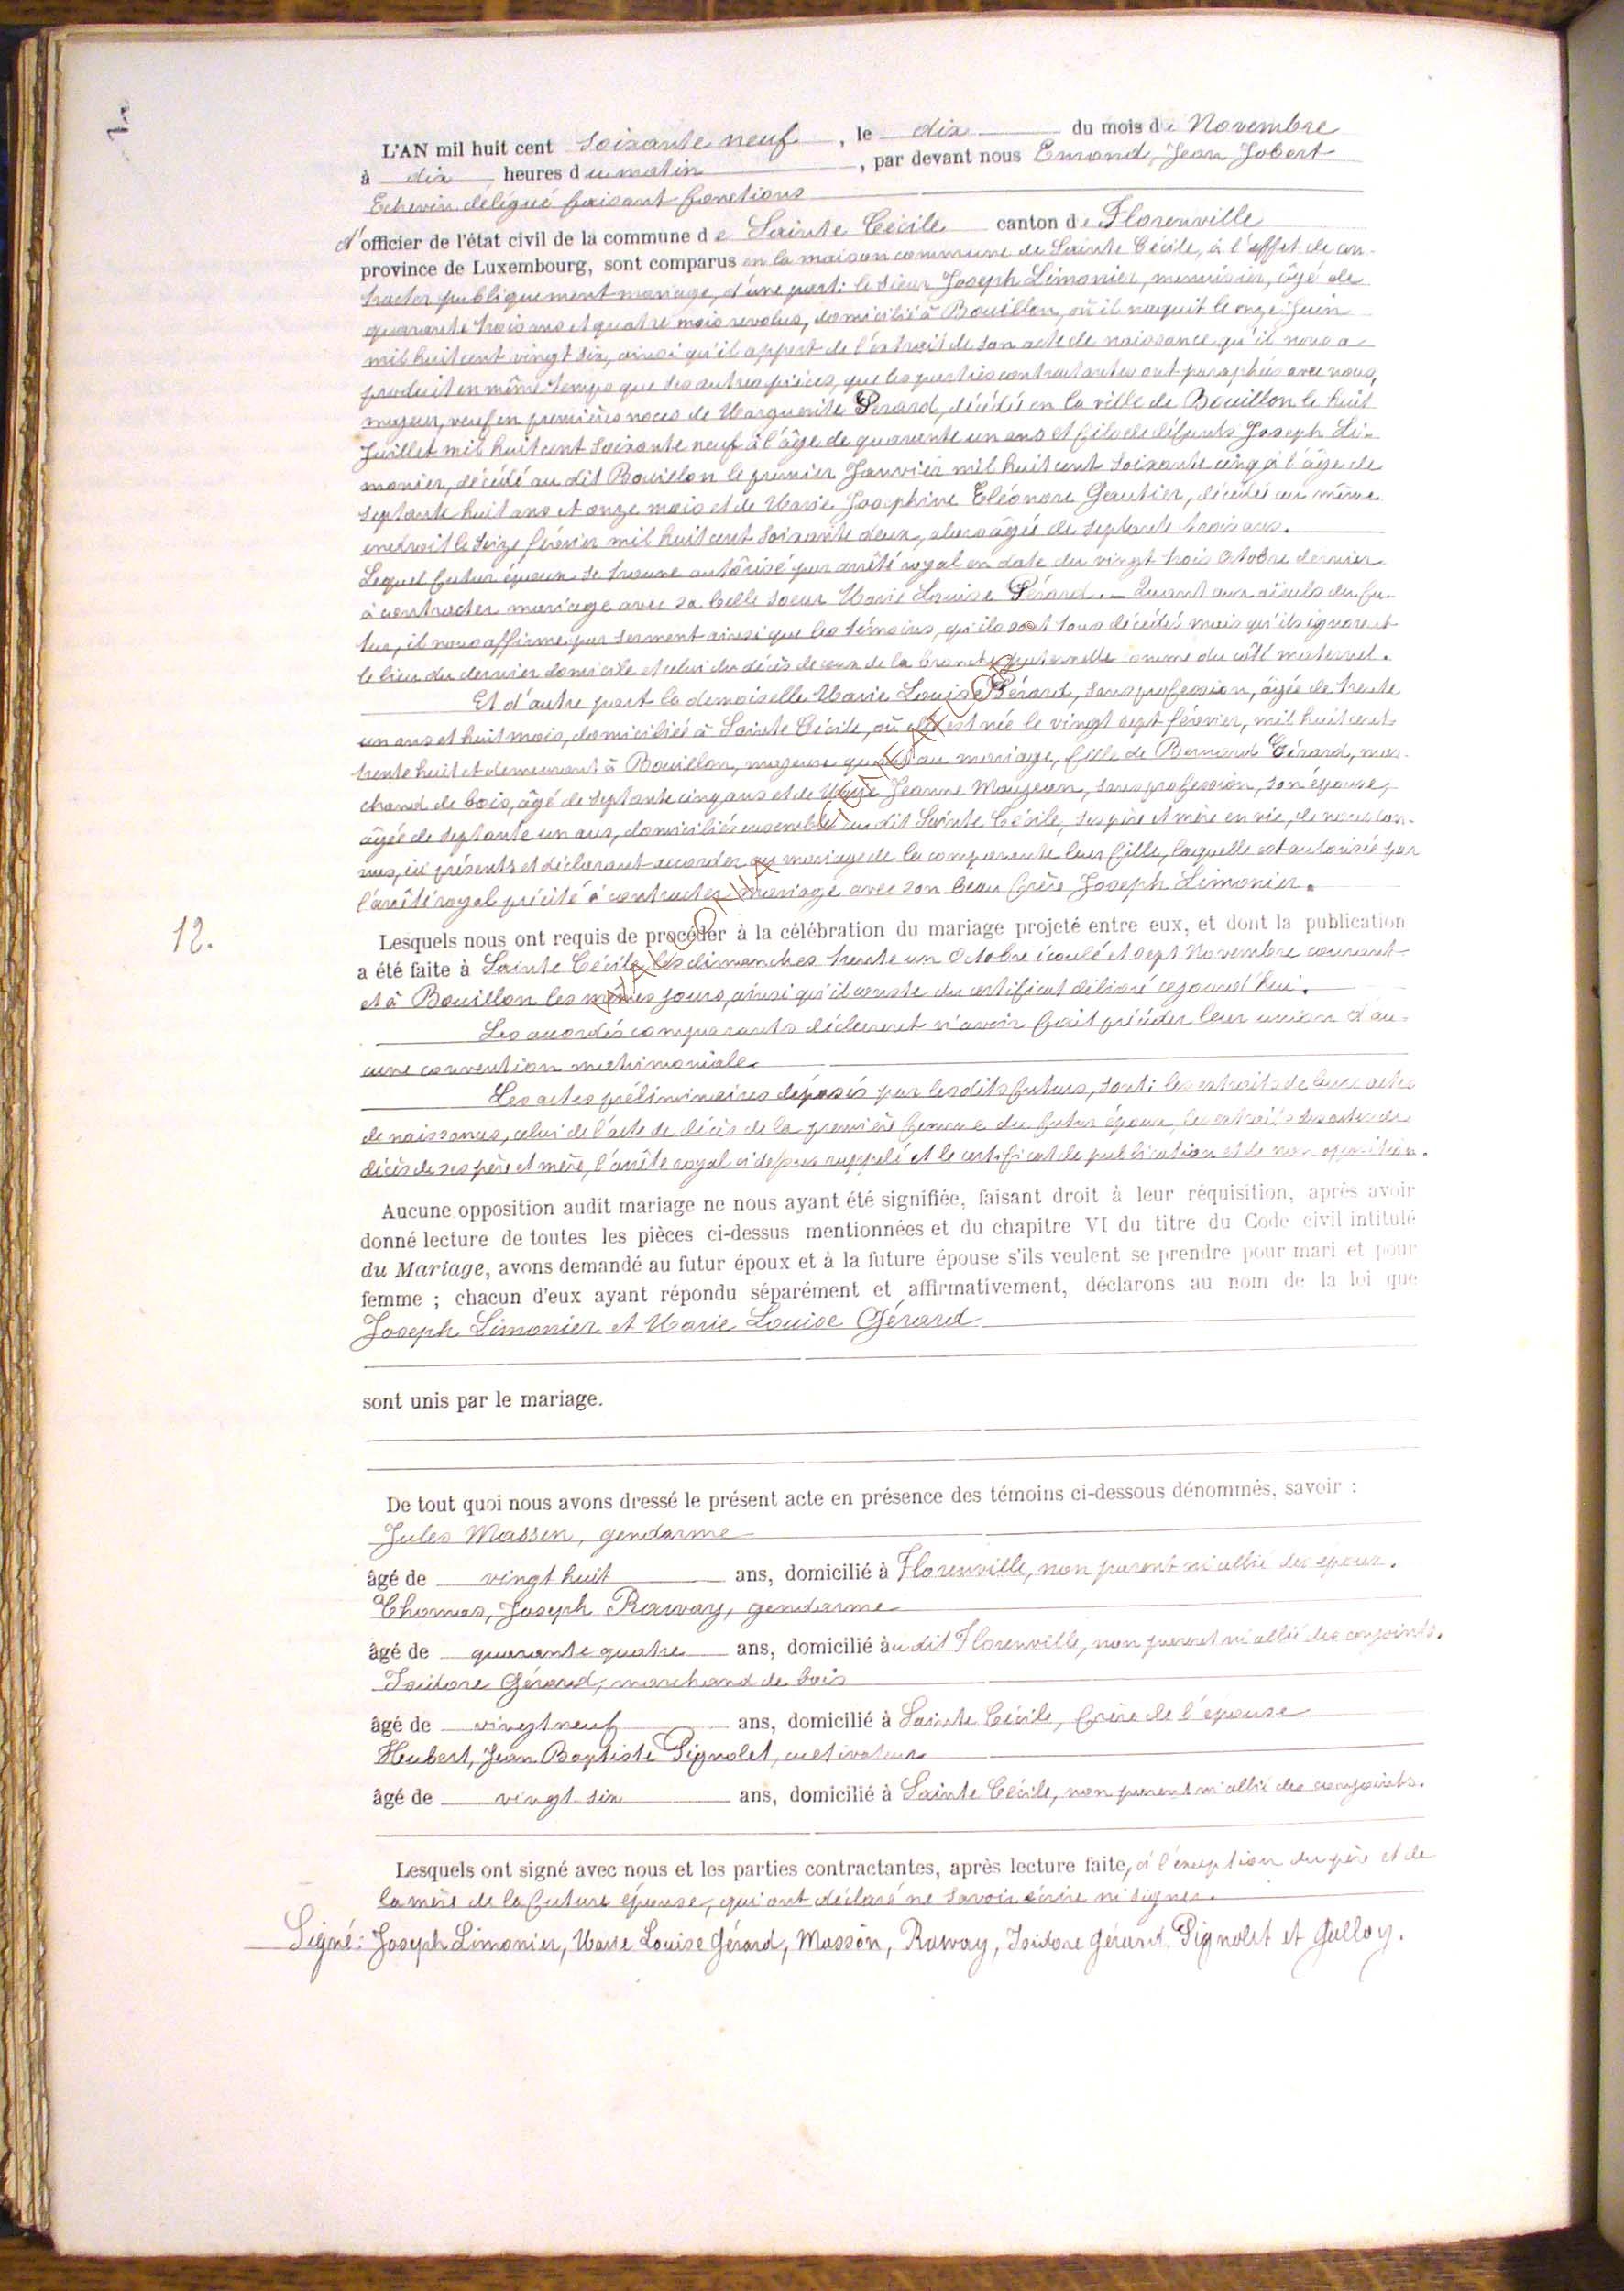 L'AN mil huit cent soixante neuf, le dix du mois de Novembre
à dix heures du matin, par devant nous Emond, Jean Jobert
Echevin délégué faisant fonctions
d'officier de l'état civil de la commune de Sainte Cécile canton de Florenville
province de Luxembourg, sont comparus en la maison commune de Sainte Cécile, à l'effet de con-
tracter publiquement mariage, d'une part: le sieur Joseph Limonier, menuisier, âgé de
quarante trois ans et quatre mois revolus, domicilié à Bouillon, où il naquit le onze Juin
mil huit cent vingt six, ainsi qu'il appert de l'extrait de son acte de naissance qu'il nous a
produit en même temps que les autres pièces, que les parties contractantes ont paraphées avec nous,
majeur, veuf en premières noces de Marguerite Gérard, décédée en la ville de Bouillon le huit
Juillet mil huit cent soixante neuf à l'âge de quarante un ans et fils de défunts Joseph Li-
monier, décédé au dit Bouillon le premier Janvier mil huit cent soixante cinq à l'âge de
septante huit ans et onze mois et de Marie Josephine Eléonore Gautier, décédée au même
endroit le seize février mil huit cent soixante deux, alors âgée de septante trois ans.
Lequel futur époux se trouve autorisé par arrêté royal en date du vingt trois Octobre dernier
à contracter mariage avec sa belle soeur Marie Louise Gérard. — Quant aux aïeuls du fu-
tur, il nous affirme par serment ainsi que les témoins, qu'ils sont tous décédés mais qu'ils ignorent
le lieu du dernier domicile et celui du décès de ceux de la branche paternelle comme du côté maternel.
Et d'autre part la demoiselle Marie Louise Gérard, sans profession, âgée de trente
un ans et huit mois, domiciliée à Sainte Cécile, où elle est née le vingt sept février, mil huit cent
trente huit et demeurant à Bouillon, majeure quant au mariage, fille de Bernard Gérard, mar-
chand de bois, âgé de septante cinq ans et de Marie Jeanne Maugean, sans profession, son épouse,
âgée de septante un ans, domiciliés ensemble au dit Sainte Cécile, ses père et mère en vie, de nous con-
nus, ici présents et déclarant accorder au mariage de la comparante leur fille, laquelle est autorisée par
l'arrêté royal précité à contracter mariage avec son beau frère Joseph Limonier.
12.
Lesquels nous ont requis de procéder à la célébration du mariage projeté entre eux, et dont la publication
a été faite à Sainte Cécile les dimanches trente un Octobre écoulé et sept Novembre courant
et à Bouillon les mêmes jours, ainsi qu'il conste du certificat délivré cejourd'hui.
Les accordés comparants déclarent n'avoir fait précéder leur union d'au-
cune convention matrimoniale.
Les actes préliminaires déposés par lesdits futurs, sont: les extraits de leurs actes
de naissances, celui de l'acte de décès de la première femme du futur époux, les extraits des actes de
décès de ses père et mère, l'arrêté royal ci dessus rappelé et le certificat de publication et de non opposition.
Aucune opposition audit mariage ne nous ayant été signifiée, faisant droit à leur réquisition, après avoir
donné lecture de toutes les pièces ci-dessus mentionnées et du chapitre VI du titre du Code civil intitulé
du Mariage, avons demandé au futur époux et à la future épouse s'ils veulent se prendre pour mari et pour
femme ; chacun d'eux ayant répondu séparément et affirmativement, déclarons au nom de la loi que
Joseph Limonier et Marie Louise Gérard
sont unis par le mariage.
De tout quoi nous avons dressé le présent acte en présence des témoins ci-dessous dénommés, savoir :
Jules Massen, gendarme
âgé de vingt huit ans, domicilié à Florenville, non parent ni allié des époux.
Thomas, Joseph Raway, gendarme
âgé de quarante quatre ans, domicilié audit Florenville, non parent ni allié des conjoints.
Isidore Gérard, marchand de bois
âgé de vingt neuf ans, domicilié à Sainte Cécile, frère de l'épouse
Hubert, Jean Baptiste Pignolet, cultivateur
âgé de vingt six ans, domicilié à Sainte Cécile, non parent ni allié des conjoints.
Lesquels ont signé avec nous et les parties contractantes, après lecture faite, à l'exception du père et de
la mère de la future épouse, qui ont déclaré ne savoir écrire ni signer.
Signé: Joseph Limonier, Marie Louise Gérard, Masson, Raway, Isidore Gérard Pignolet et Galloy.